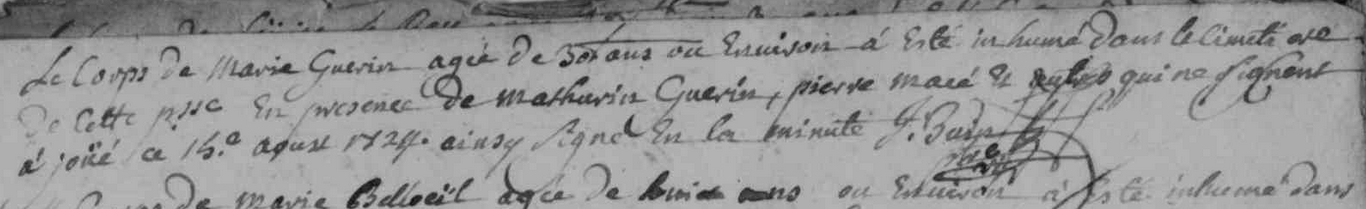 Le Corps de Marie Guerin agée de 30 ans ou Enuiron á Esté inhumé dans le Cimetiere
de Cette psse En presence de Mathurin Guerin, pierre macé Et autres qui ne signent
á joüé ce 15.e aoust 1724. ainsy signé En la minute
de marie agée de ans ou Enuiron á Esté inhumé dans